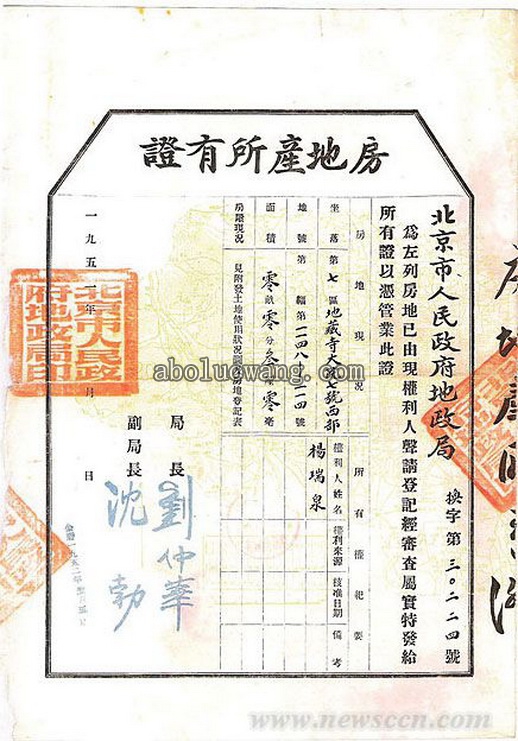 房地產所有證
北京市人民政府地政局
換字第三〇二二四號
為左列房地已由現權利人聲請登記經審查屬實特發給
所有證以憑管業此證
房地現況
所有權記要
坐落
第七區地藏寺大院七號西部
權利人姓名
權利來源
核准日期
備考
楊瑞泉
地號
第 幅第一四八
一四號
面積
零畝零分叁
零毫
房屋現況
見附發土地使用狀況
房地登記表
一九五一年
月
日
北京市人民政
府地政局印
局長
劉仲華
副局長
沈勃
aboluowang.com
www.newsccn.com